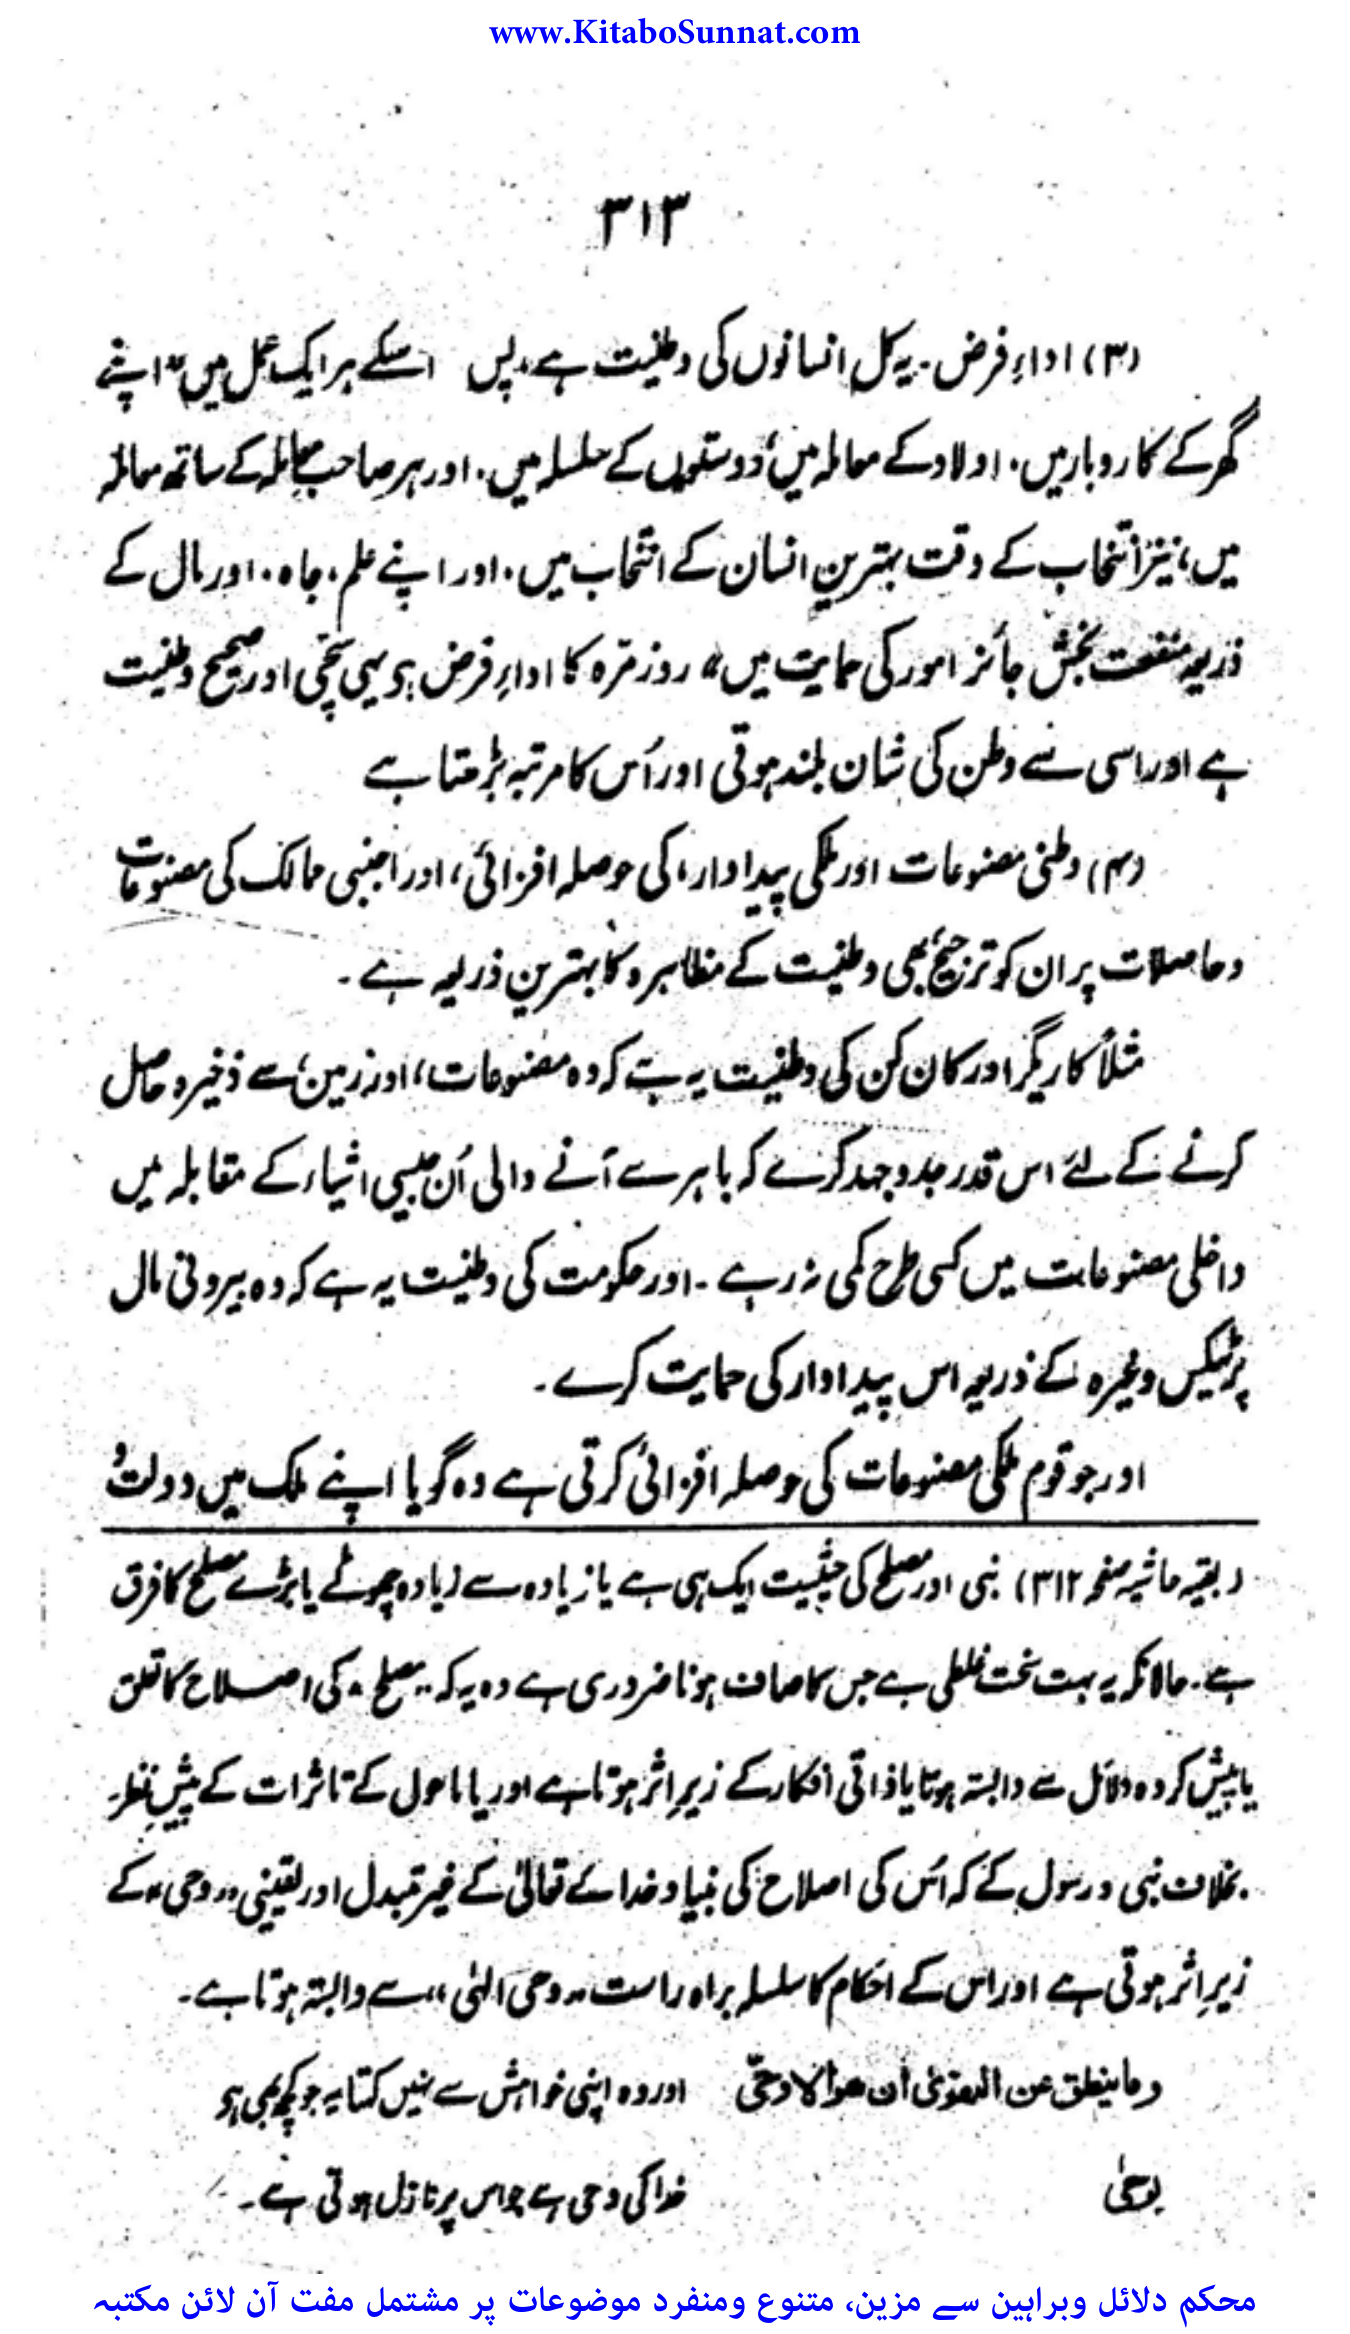 www.KitaboSunnat.com
۳۱۳
(۳) اداءِ فرض. یہ کل انسانوں کی وطنیت ہے، پس اسکے ہر ایک عمل میں "اپنے
گھر کے کاروبار میں، اولاد کے معاملہ میں، دوستوں کے سلسلہ میں، اور ہر صاحب معاملہ کے ساتھ معاملہ
میں، نیز انتخاب کے وقت بہترین انسان کے انتخاب میں، اور اپنے علم، جاہ، اور مال کے
ذریعہ منفعت بخش جائز امور کی حمایت میں" روزمرّہ کا اداءِ فرض ہو یہی سچّی اور صحیح وطنیت
ہے اور اسی سے وطن کی شان بلند ہوتی اور اُس کا مرتبہ بڑھتا ہے
(۴) وطنی مصنوعات اور ملکی پیداوار، کی حوصلہ افزائی، اور اجنبی ممالک کی مصنوعات
و حاصلات پر ان کو ترجیح بھی وطنیت کے مظاہرہ کا بہترین ذریعہ ہے۔
مثلاً کاریگر اور کان کن کی وطنیت یہ ہے کہ وہ مصنوعات، اور زمین، سے ذخیرہ حاصل
کرنے کے لئے اس قدر جدوجہد کرے کہ باہر سے آنے والی اُن جیسی اشیاء کے مقابلہ میں
داخلی مصنوعات میں کسی طرح کمی نہ رہے۔ اور حکومت کی وطنیت یہ ہے کہ وہ بیرونی مال
پر ٹیکس وغیرہ کے ذریعہ اس پیداوار کی حمایت کرے۔
اور جو قوم ملکی مصنوعات کی حوصلہ افزائی کرتی ہے وہ گویا اپنے ملک میں دولت و
(بقیہ حاشیہ صفحہ ۳۱۲) نبی اور مصلح کی حیثیت ایک ہی ہے یا زیادہ سے زیادہ چھوٹے یا بڑے مصلح کا فرق
ہے۔ حالانکہ یہ بہت سخت غلطی ہے جس کا صاف ہونا ضروری ہے وہ یہ کہ "مصلح" کی اصلاح کا تعلق
یا پیش کردہ دلائل سے وابستہ ہوتا یا ذاتی افکار کے زیرِ اثر ہوتا ہے اور یا ماحول کے تاثرات کے پیشِ نظر
بخلاف نبی و رسول کے کہ اُس کی اصلاح کی بنیاد خدائے تعالیٰ کے غیر متبدل اور یقینی "وحی" کے
زیرِ اثر ہوتی ہے اور اس کے احکام کا سلسلہ براہ راست "وحی الٰہی" سے وابستہ ہوتا ہے۔
وما ینطق عن الھویٰ ان ھو الا وحیٌ اور وہ اپنی خواہش سے نہیں کہتا یہ جو کچھ بھی ہو
یوحیٰ خدا کی وحی ہے جو اس پر نازل ہوتی ہے۔
محکم دلائل وبراہین سے مزین، متنوع ومنفرد موضوعات پر مشتمل مفت آن لائن مکتبہ